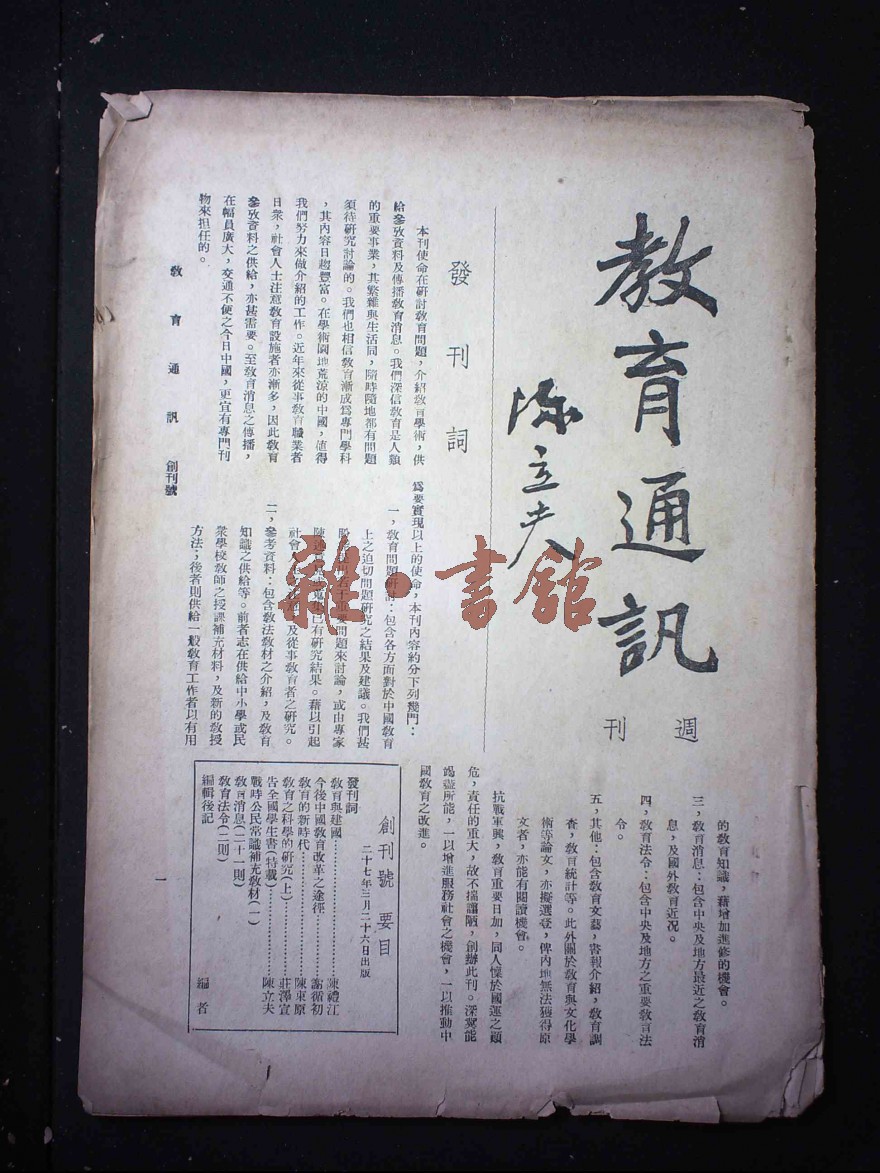 教育通訊
陳立夫
週刊
發刊詞
本刊使命在研討教育問題，介紹教育學術，供
給參攷資料及傳播教育消息。我們深信教育是人類
的重要事業，其繁雜與生活同，隨時隨地都有問題
須待研究討論的。我們也相信教育漸成爲專門學科
，其內容日趨豐富。在學術園地荒涼的中國，值得
我們努力來做介紹的工作。近年來從事教育職業者
日衆，社會人士注意教育設施者亦漸多，因此教育
參攷資料之供給，亦甚需要。至教育消息之傳播，
在幅員廣大，交通不便之今日中國，更宜有專門刊
物來担任的。
爲要實現以上的使命，本刊內容約分下列幾門：
一，教育問題研討：包含各方面對於中國教育
上之迫切問題研究之結果及建議。我們甚
重要問題來討論，或由專家
已有研究結果。藉以引起
社會人 及從事教育者之研究。
二，參考資料：包含教法教材之介紹，及教育
知識之供給等。前者志在供給中小學或民
衆學校教師之授課補充材料，及新的教授
方法；後者則供給一般教育工作者以有用
的教育知識，藉增加進修的機會。
三，教育消息：包含中央及地方最近之教育消
息，及國外教育近況。
四，教育法令：包含中央及地方之重要教育法
令。
五，其他：包含教育文藝，書報介紹，教育調
查，教育統計等。此外關於教育與文化學
術等論文，亦擬選登，俾內地無法獲得原
文者，亦能有閱讀機會。
抗戰軍興，教育重要日加，同人懍於國運之顛
危，責任的重大，故不揣譾陋，創辦此刊。深冀能
竭盡所能，一以增進服務社會之機會，一以推動中
國教育之改進。
創刊號要目
二十七年三月二十六日出版
發刊詞
教育與建國…………陳禮江
今後中國教育改革之途徑…………謝循初
教育的新時代…………陳東原
教育之科學的研究(上)…………莊澤宣
告全國學生書(特載)…………陳立夫
戰時公民常識補充教材(一)
教育消息(二十一則)
教育法令(二則)
編輯後記…………編者
教育通訊 創刊號
一
雜·書館